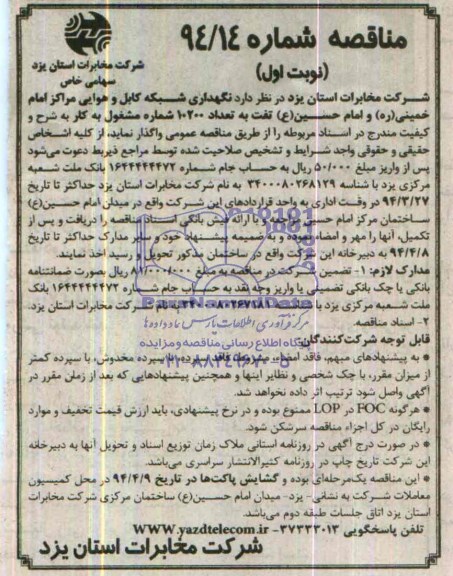 مناقصه شماره ۹۴/۱۴
(نوبت اول)
شرکت مخابرات استان یزد
سهامی خاص
شرکت مخابرات استان یزد در نظر دارد نگهداری شبکه کابل و هوایی مراکز امام
خمینی(ره) و امام حسین(ع) تفت به تعداد ۱۰۲۰۰ شماره مشغول به کار به شرح و
کیفیت مندرج در اسناد مربوطه را از طریق مناقصه عمومی واگذار نماید، از کلیه اشخاص
حقیقی و حقوقی واجد شرایط و تشخیص صلاحیت شده توسط مراجع ذیربط دعوت می‌شود
پس از واریز مبلغ ۵۰/۰۰۰ ریال به حساب جام شماره ۱۶۴۴۴۴۴۴۷۲ بانک ملت شعبه
مرکزی یزد با شناسه ۳۴۰۰۰۸۰۲۶۸۱۲۹ به نام شرکت مخابرات استان یزد حداکثر تا تاریخ
۹۴/۳/۲۷ در وقت اداری به واحد قراردادهای این شرکت واقع در میدان امام حسین(ع)
ساختمان مرکز امام حسین مراجعه و با ارائه فیش بانکی اسناد مناقصه را دریافت و پس از
تکمیل، آنها را مهر و امضاء نموده و به ضمیمه پیشنهاد خود و سایر مدارک حداکثر تا تاریخ
۹۴/۴/۸ به دبیرخانه این شرکت واقع در ساختمان مذکور تحویل و رسید اخذ نمایند.
مدارک لازم: ۱- تضمین شرکت در مناقصه به مبلغ ریال بصورت ضمانتنامه
بانکی یا چک بانکی تضمینی یا واریز وجه نقد به حساب جام شماره ۱۶۴۴۴۴۴۴۷۲ بانک
ملت شعبه مرکزی یزد با نام شرکت مخابرات استان یزد.
۲- اسناد مناقصه.
قابل توجه شرکت‌کنندگان:
• به پیشنهادهای مبهم، فاقد امضاء، مشروط، فاقد سپرده، با سپرده مخدوش، با سپرده کمتر
از میزان مقرر، با چک شخصی و نظایر اینها و همچنین پیشنهادهایی که بعد از زمان مقرر در
آگهی واصل شود ترتیب اثر داده نخواهد شد.
• هرگونه FOC در LOP ممنوع بوده و در نرخ پیشنهادی، باید ارزش قیمت تخفیف و موارد
رایگان در کل اجزاء مناقصه سرشکن شود.
• در صورت درج آگهی در روزنامه استانی ملاک زمان توزیع اسناد و تحویل آنها به دبیرخانه
این شرکت تاریخ چاپ در روزنامه کثیرالانتشار سراسری می‌باشد.
• این مناقصه یک‌مرحله‌ای بوده و گشایش پاکت‌ها در تاریخ ۹۴/۴/۹ در محل کمیسیون
معاملات شرکت به نشانی- یزد- میدان امام حسین(ع) ساختمان مرکزی شرکت مخابرات
استان یزد اتاق جلسات طبقه دوم می‌باشد.
تلفن پاسخگویی ۳۷۲۳۳۰۱۳- WWW.yazdtelecom.ir
شرکت مخابرات استان یزد